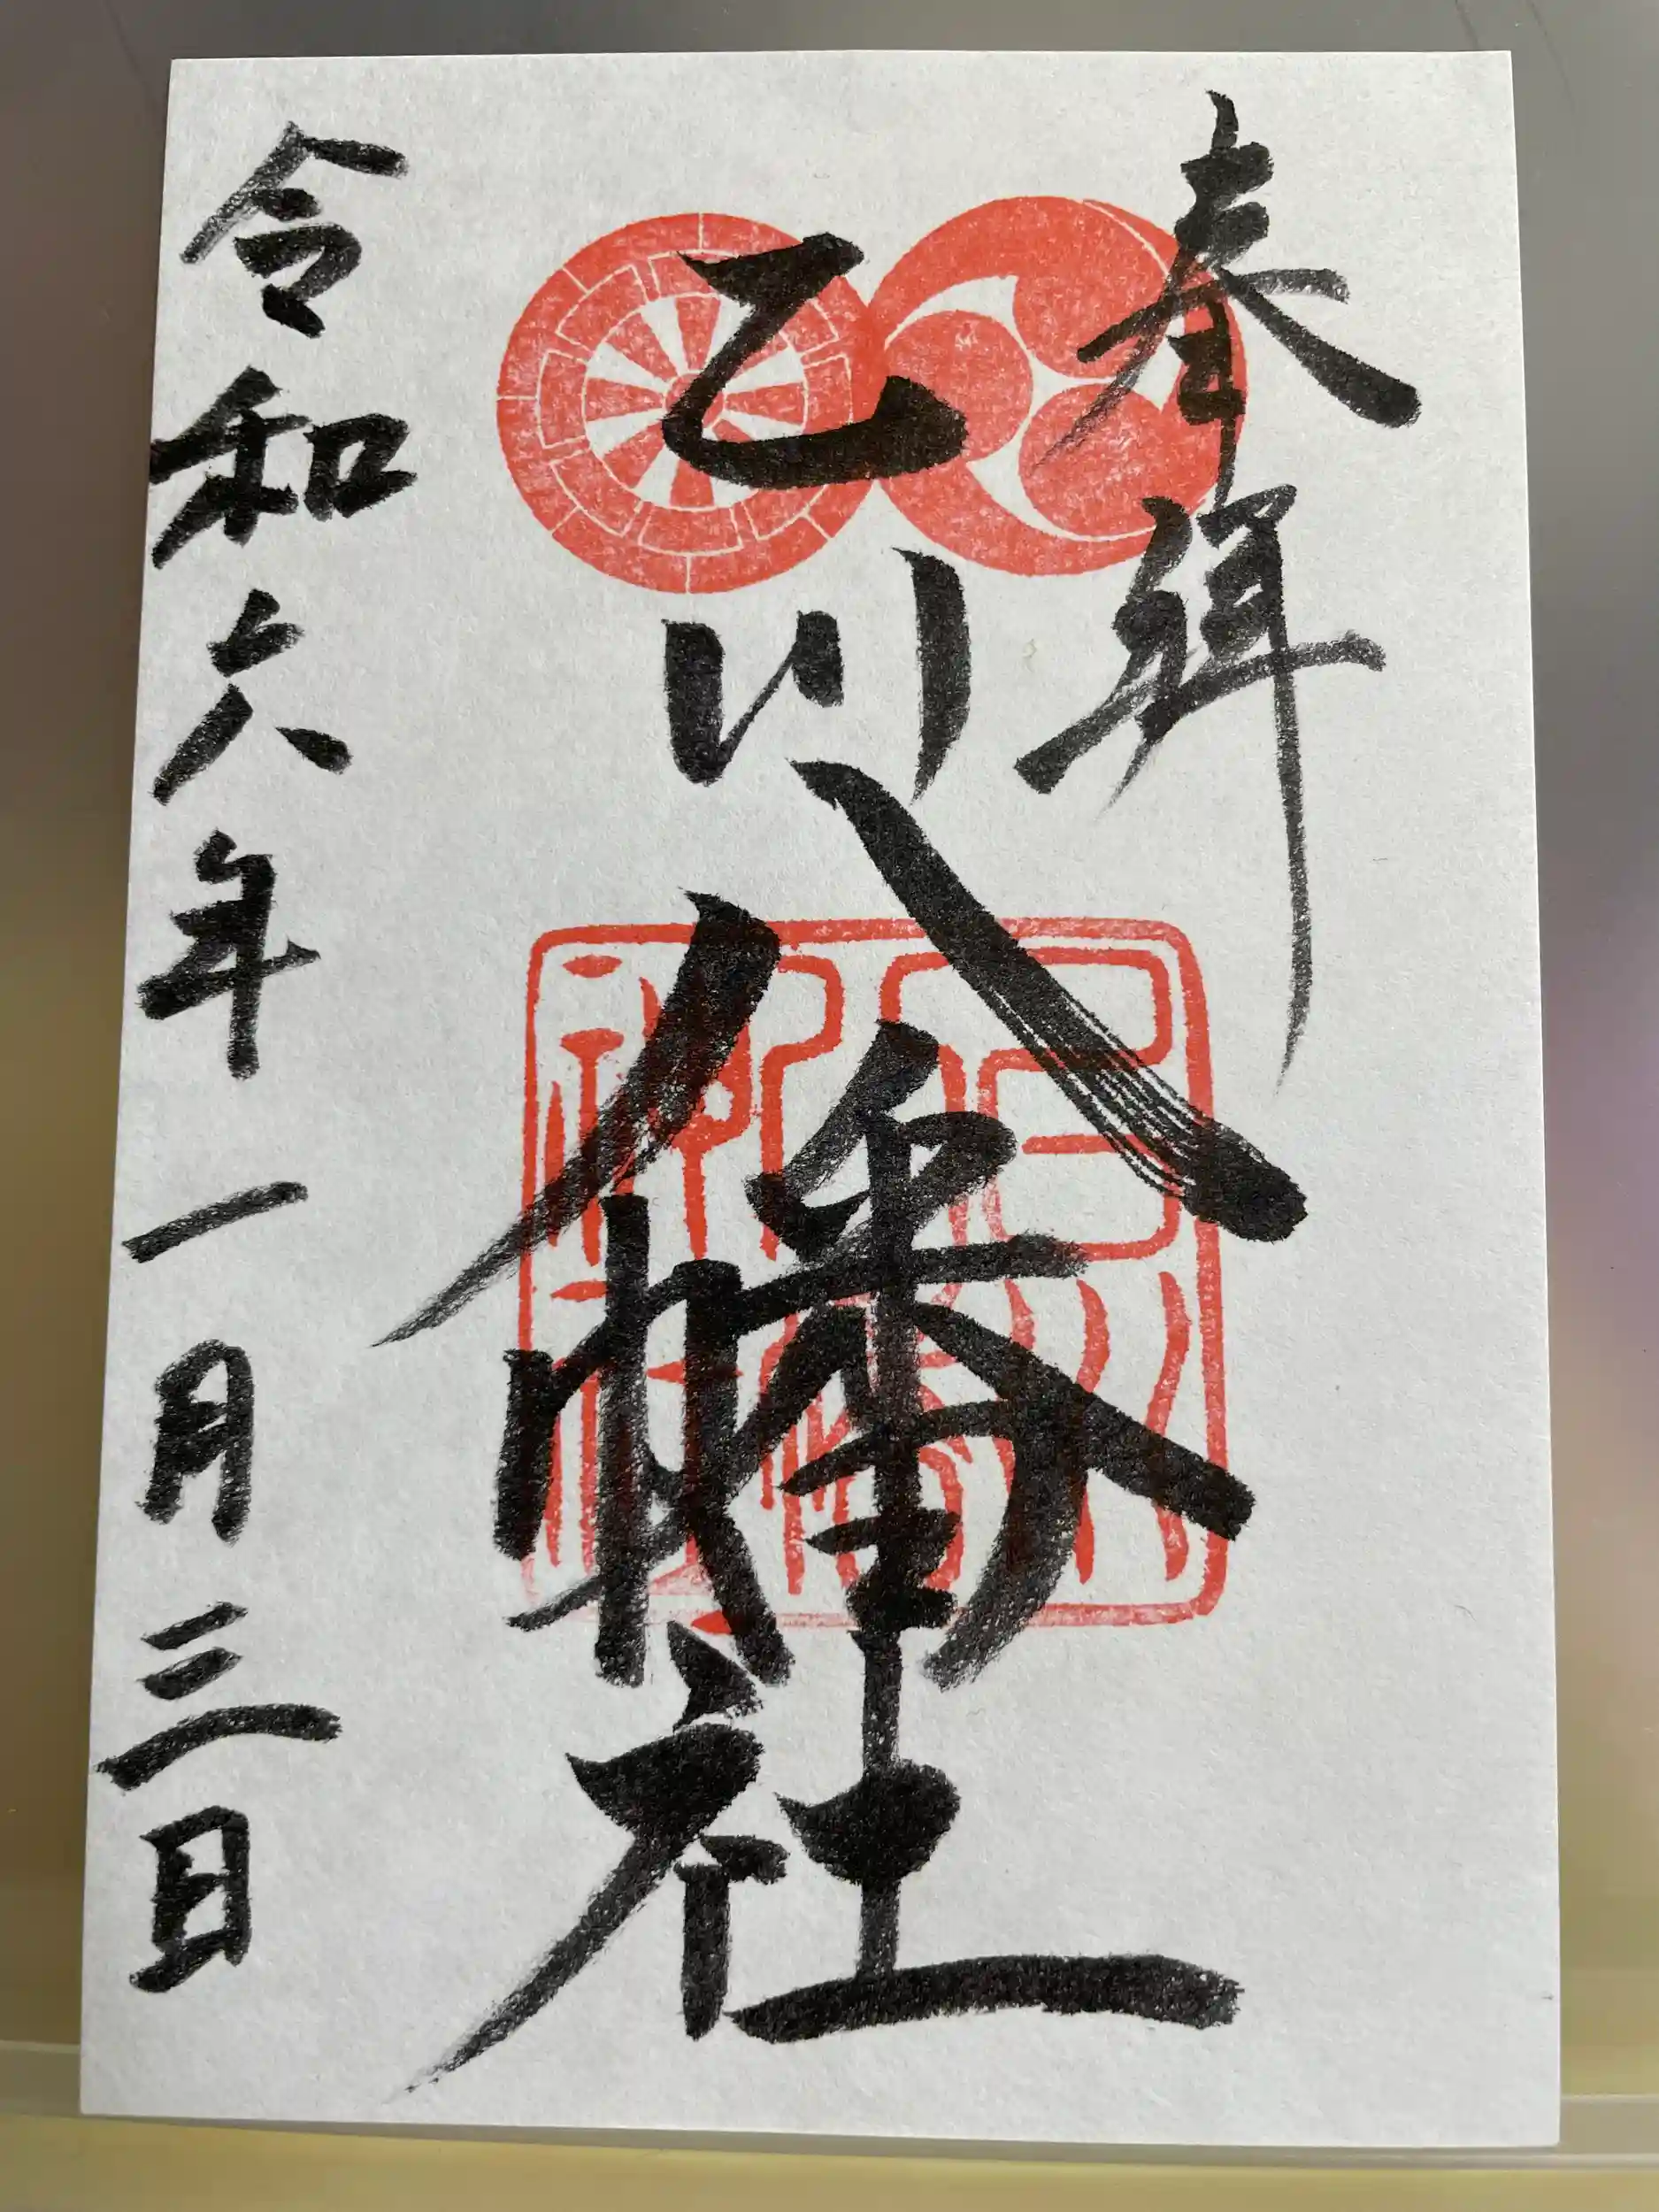 奉拝
乙川八幡社
令和六年一月三日